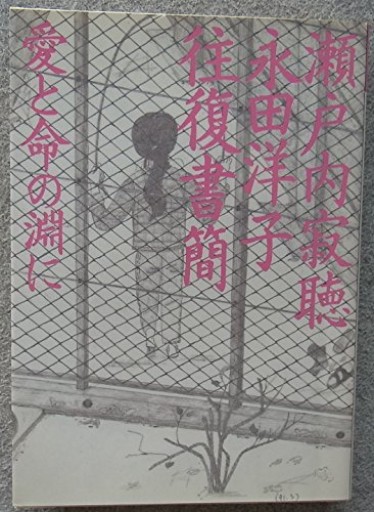 瀬戸内寂聴
永田洋子
往復書簡
愛と命の淵に